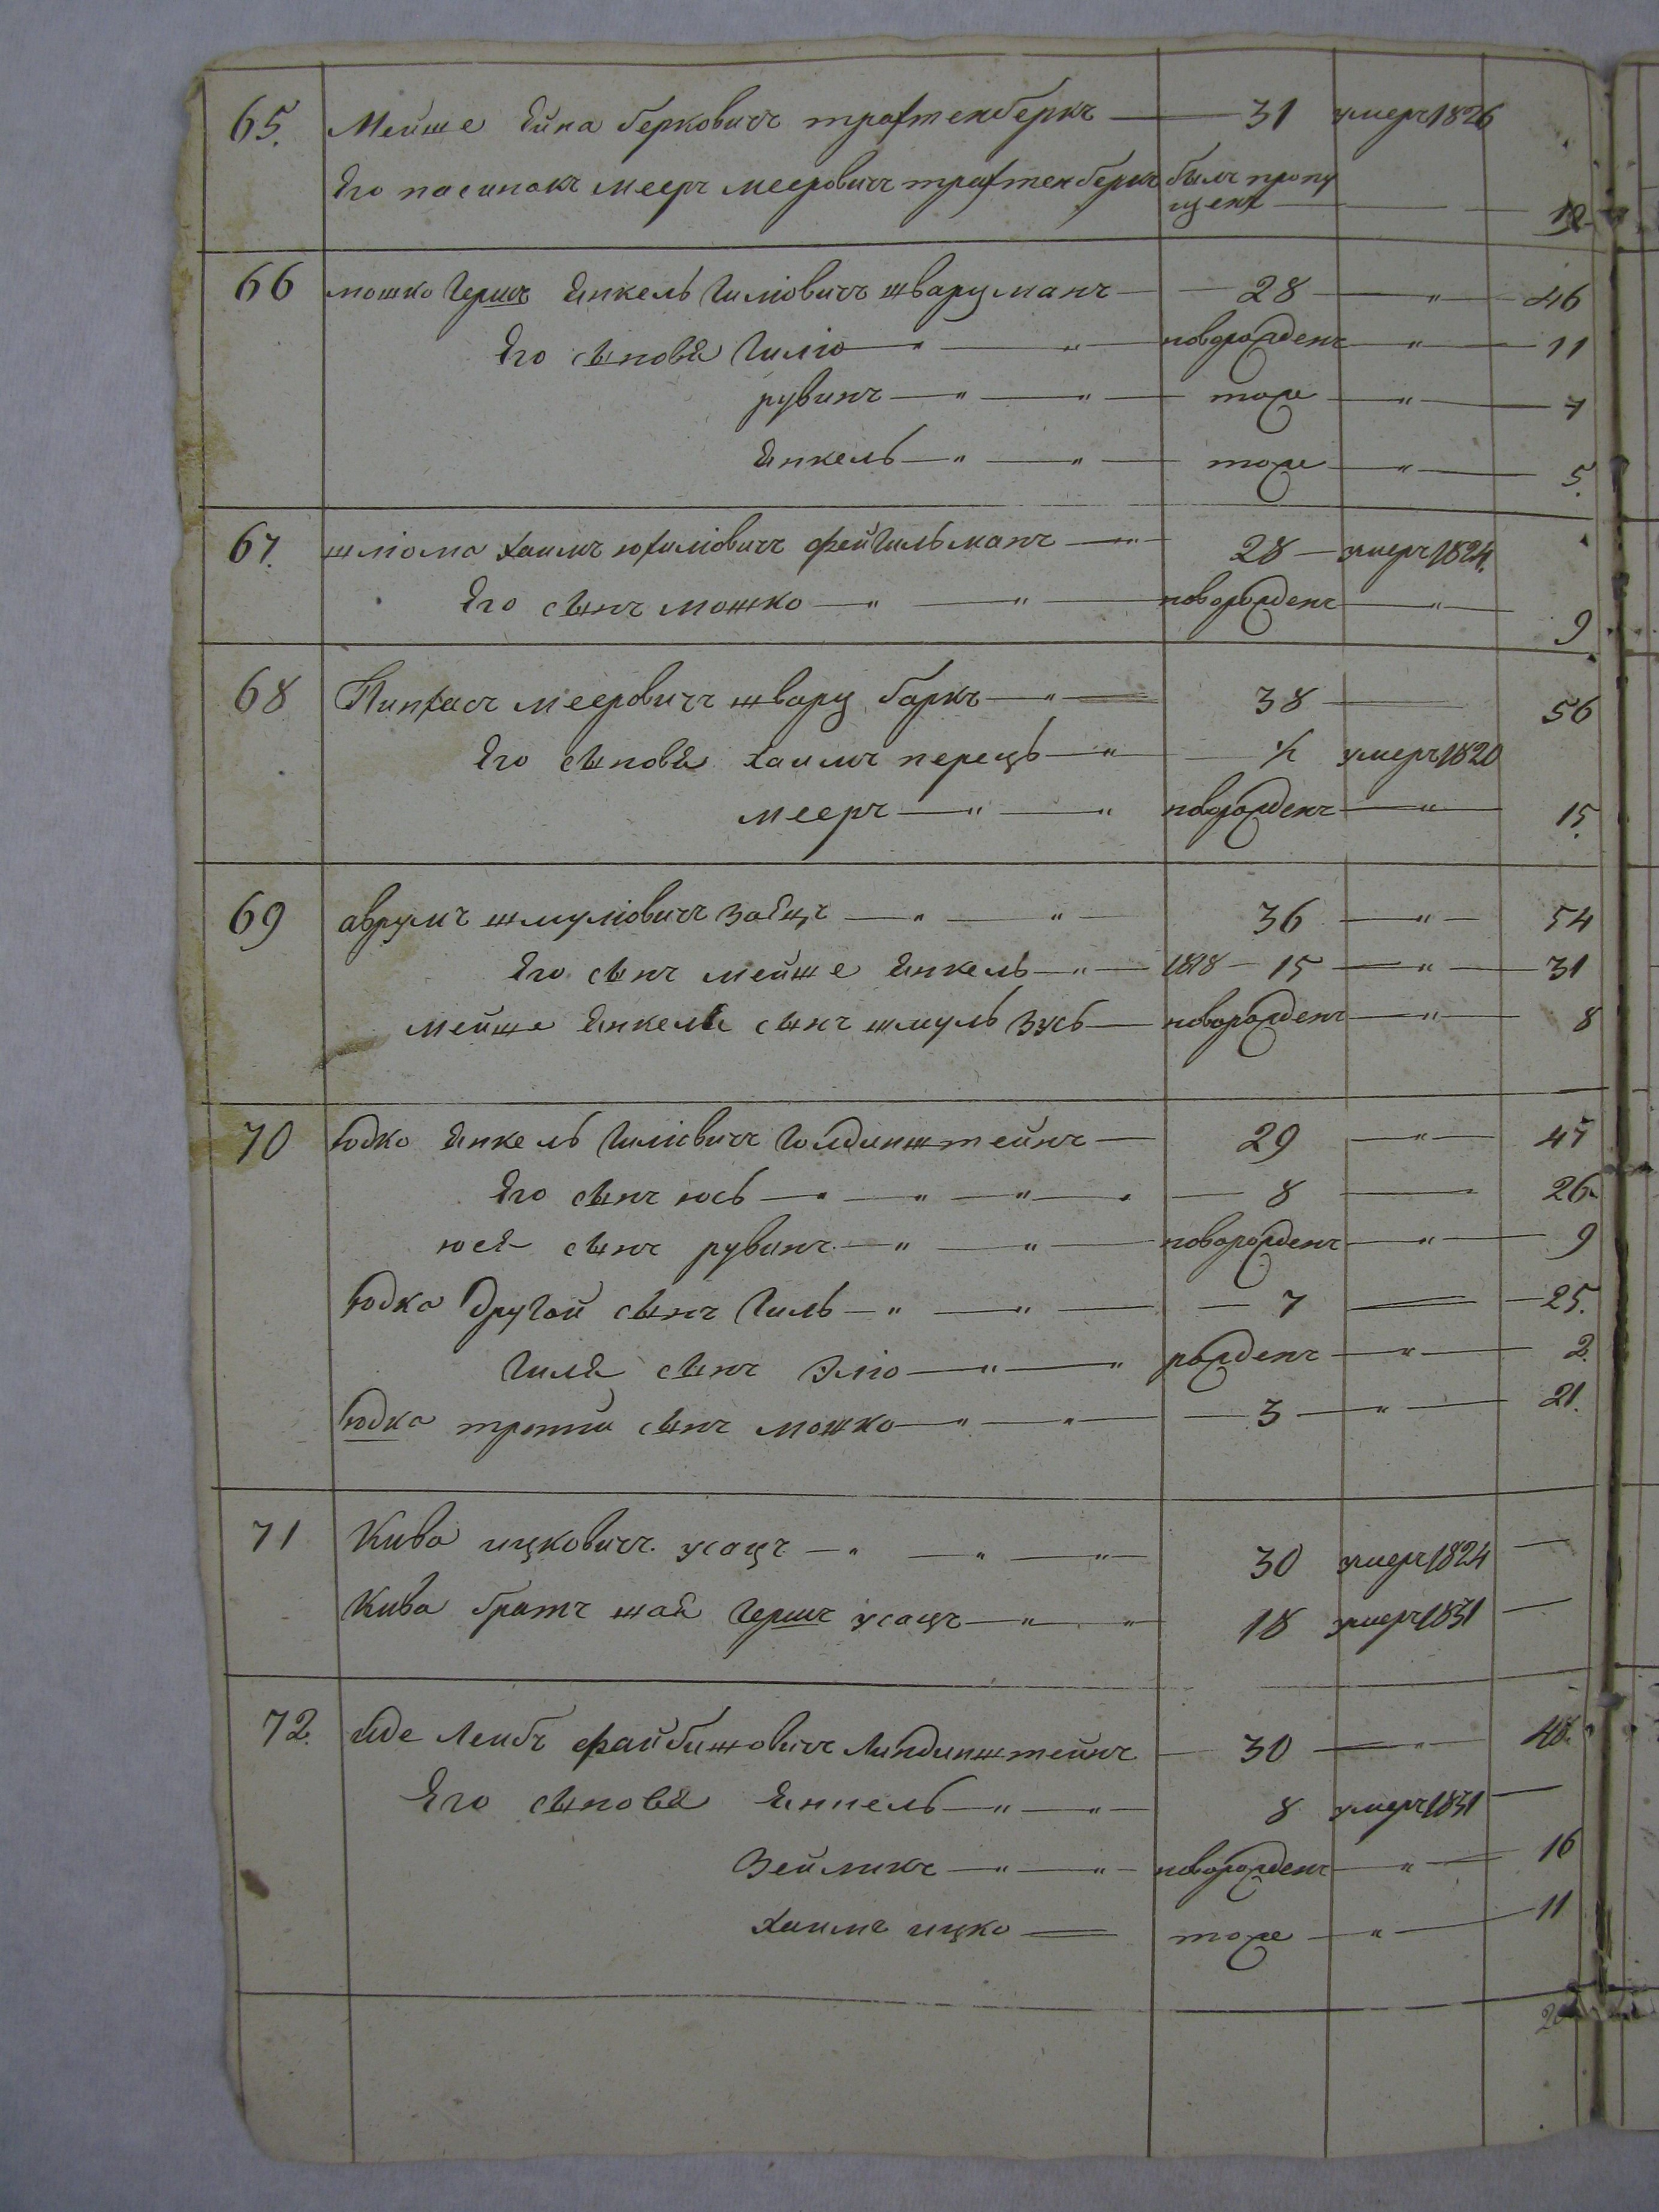 65. Мейше Ейна Берковичъ трахтенберкъ — 31 умеръ 1826
Его пасинокъ Мееръ Мееровичъ трахтенберкъ былъ пропу
щенъ —
66 мошко Гершъ Янкель Гиліовичъ шварцманъ — 28 — " — 46
Его сыновя Гиліо — " — " — новорожденъ — " — 11
рувинъ — " — " — тоже — " — 7
Янкель — " — " — тоже — " — 5.
67. шліома хаимъ юхиліовичъ фейгильманъ — " — 28 — умеръ 1824.
Его сынъ мошко — " — " — новорожденъ — " — 9
68 Пинхасъ мееровичъ шварц баркъ — " — 38 — 56
Его сыновя хаимъ перецъ — " — ½ умеръ 1820
мееръ — " — " новорожденъ — " — 15.
69 аврумъ шмуліовичъ заецъ — " — " — 36 — " — 54
Его сынъ мейше Янкель — " — 1818 — 15 — " — 31
мейше Янкеля сынъ шмуль зусь — новорожденъ — " — 8
70 юдко Янкель Гиліовичъ Голдинштейнъ — 29 — " — 47
Его сынъ юсь — " — " — " — " — 8 — 26.
юся сынъ рувинъ — " — " — новорожденъ — " — 9
юдка другой сынъ Гиль — " — " — 7 — 25.
Гиля сынъ Эліо — " — " рожденъ — " — 2.
юдка третій сынъ мошко — " — " — 3 — " — 21.
71 Кива ицковичъ усацъ — " — " — " — 30 умеръ 1824 —
Кива братъ шая Гершъ усацъ — " — " 18 умеръ 1831 —
72. Иде Лейбъ файбишовичъ Линдинштейнъ — 30 — " — 48.
Его сыновя Янкель — " — " — 8 умеръ 1831 —
Зейликъ — " — " — новорожденъ — " — 16
хаимъ ицко — тоже — " — 11